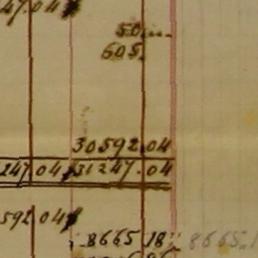 47.04
50
605.
30592.04
247.04 31247.04
592 04
8665 18 8665.1